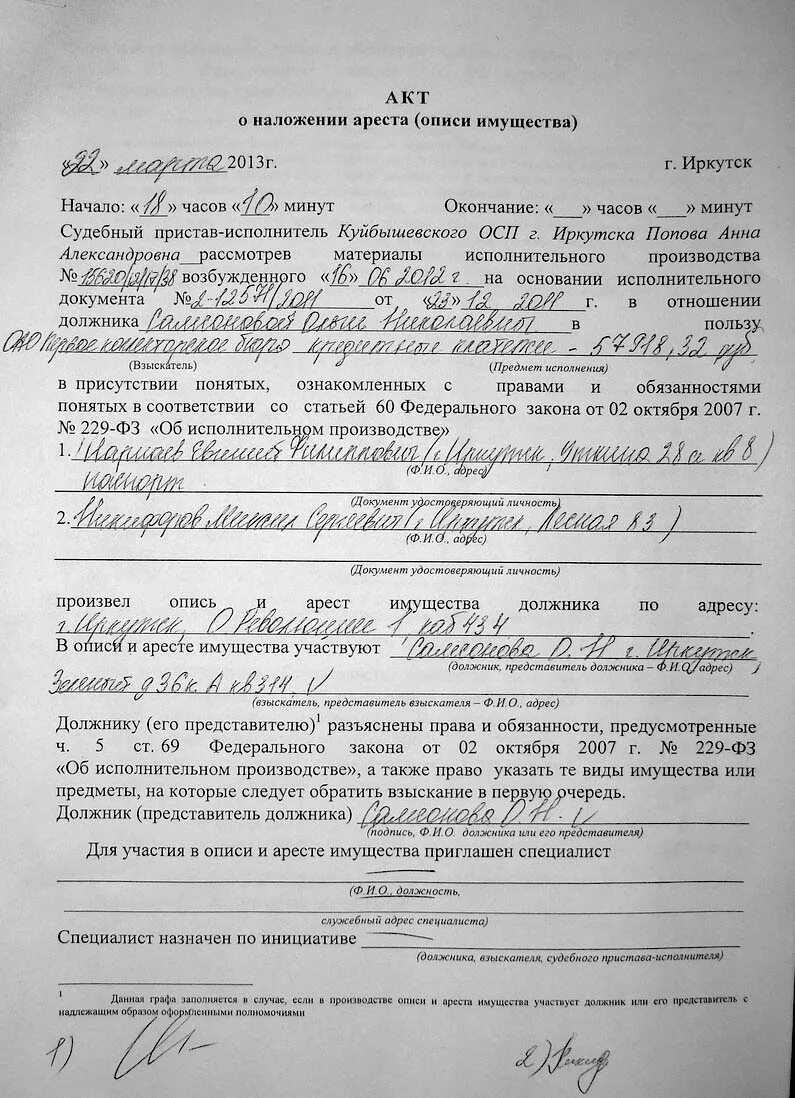 АКТ
о наложении ареста (описи имущества)
«22» марта 2013г. г. Иркутск
Начало: «18» часов «10» минут Окончание: «___» часов «___» минут
Судебный пристав-исполнитель Куйбышевского ОСП г. Иркутска Попова Анна
Александровна рассмотрев материалы исполнительного производства
№ 15620/12/17/38 возбужденного «16» 06 2012 г. на основании исполнительного
документа № 2-1257/2011 от «23» 12 2011 г. в отношении
должника Самсоновой Ольги Николаевны в пользу
ОАО Первое коллекторское бюро кредитные платежи - 57918,32 руб
(Взыскатель) (Предмет исполнения)
в присутствии понятых, ознакомленных с правами и обязанностями
понятых в соответствии со статьей 60 Федерального закона от 02 октября 2007 г.
№ 229-ФЗ «Об исполнительном производстве»
1. Евгений Филиппович г. Иркутск, Уткина 28а кв 8)
(Ф.И.О., адрес)
паспорт
(Документ удостоверяющий личность)
2. Никифоров Михаил Сергеевич (г. Иркутск, Лесная 83)
(Ф.И.О., адрес)
(Документ удостоверяющий личность)
произвел опись и арест имущества должника по адресу:
г. Иркутск, О Революции 1 каб 434
В описи и аресте имущества участвуют Самсонова О. Н г. Иркутск
(должник, представитель должника – Ф.И.О, адрес)
Зеленый д 36 к. А кв 314. V
(взыскатель, представитель взыскателя – Ф.И.О, адрес)
Должнику (его представителю)1 разъяснены права и обязанности, предусмотренные
ч. 5 ст. 69 Федерального закона от 02 октября 2007 г. № 229-ФЗ
«Об исполнительном производстве», а также право указать те виды имущества или
предметы, на которые следует обратить взыскание в первую очередь.
Должник (представитель должника) Самсонова О. Н. V
(подпись, Ф.И.О. должника или его представителя)
Для участия в описи и аресте имущества приглашен специалист
(Ф.И.О., должность,
служебный адрес специалиста)
Специалист назначен по инициативе
(должника, взыскателя, судебного пристава-исполнителя)
1 Данная графа заполняется в случае, если в производстве описи и ареста имущества участвует должник или его представитель с
надлежащим образом оформленными полномочиями
1) 2)